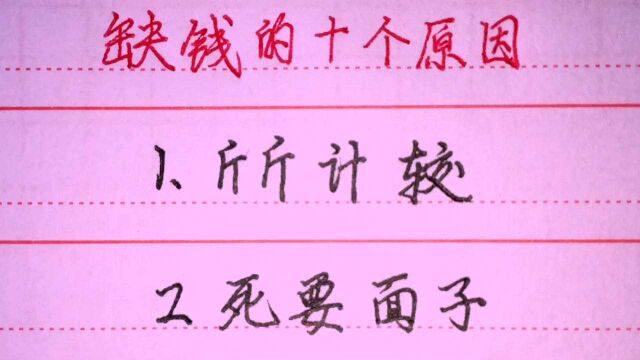 缺钱的十个原因
1、斤斤计较
2、死要面子